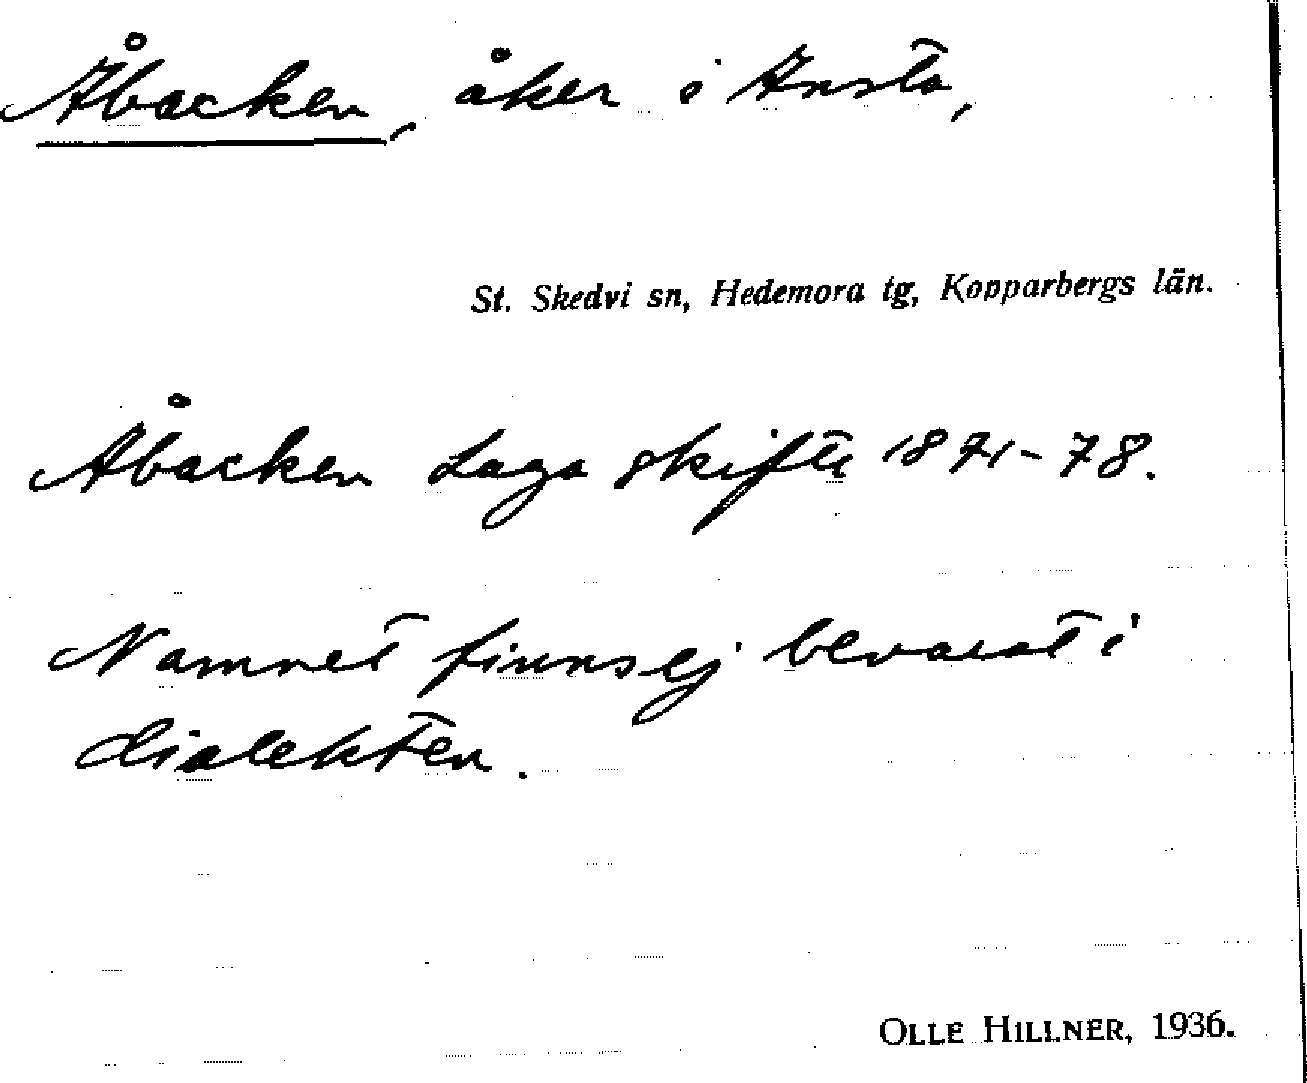 Åbacken, åker i Ansta,
St. Skedvi sn, Hedemora tg, Kopparbergs län.
Åbacken Laga skifte 1871-78.
Namnet finns ej bevarat i
dialekten.
OLLE HILLNER, 1936.